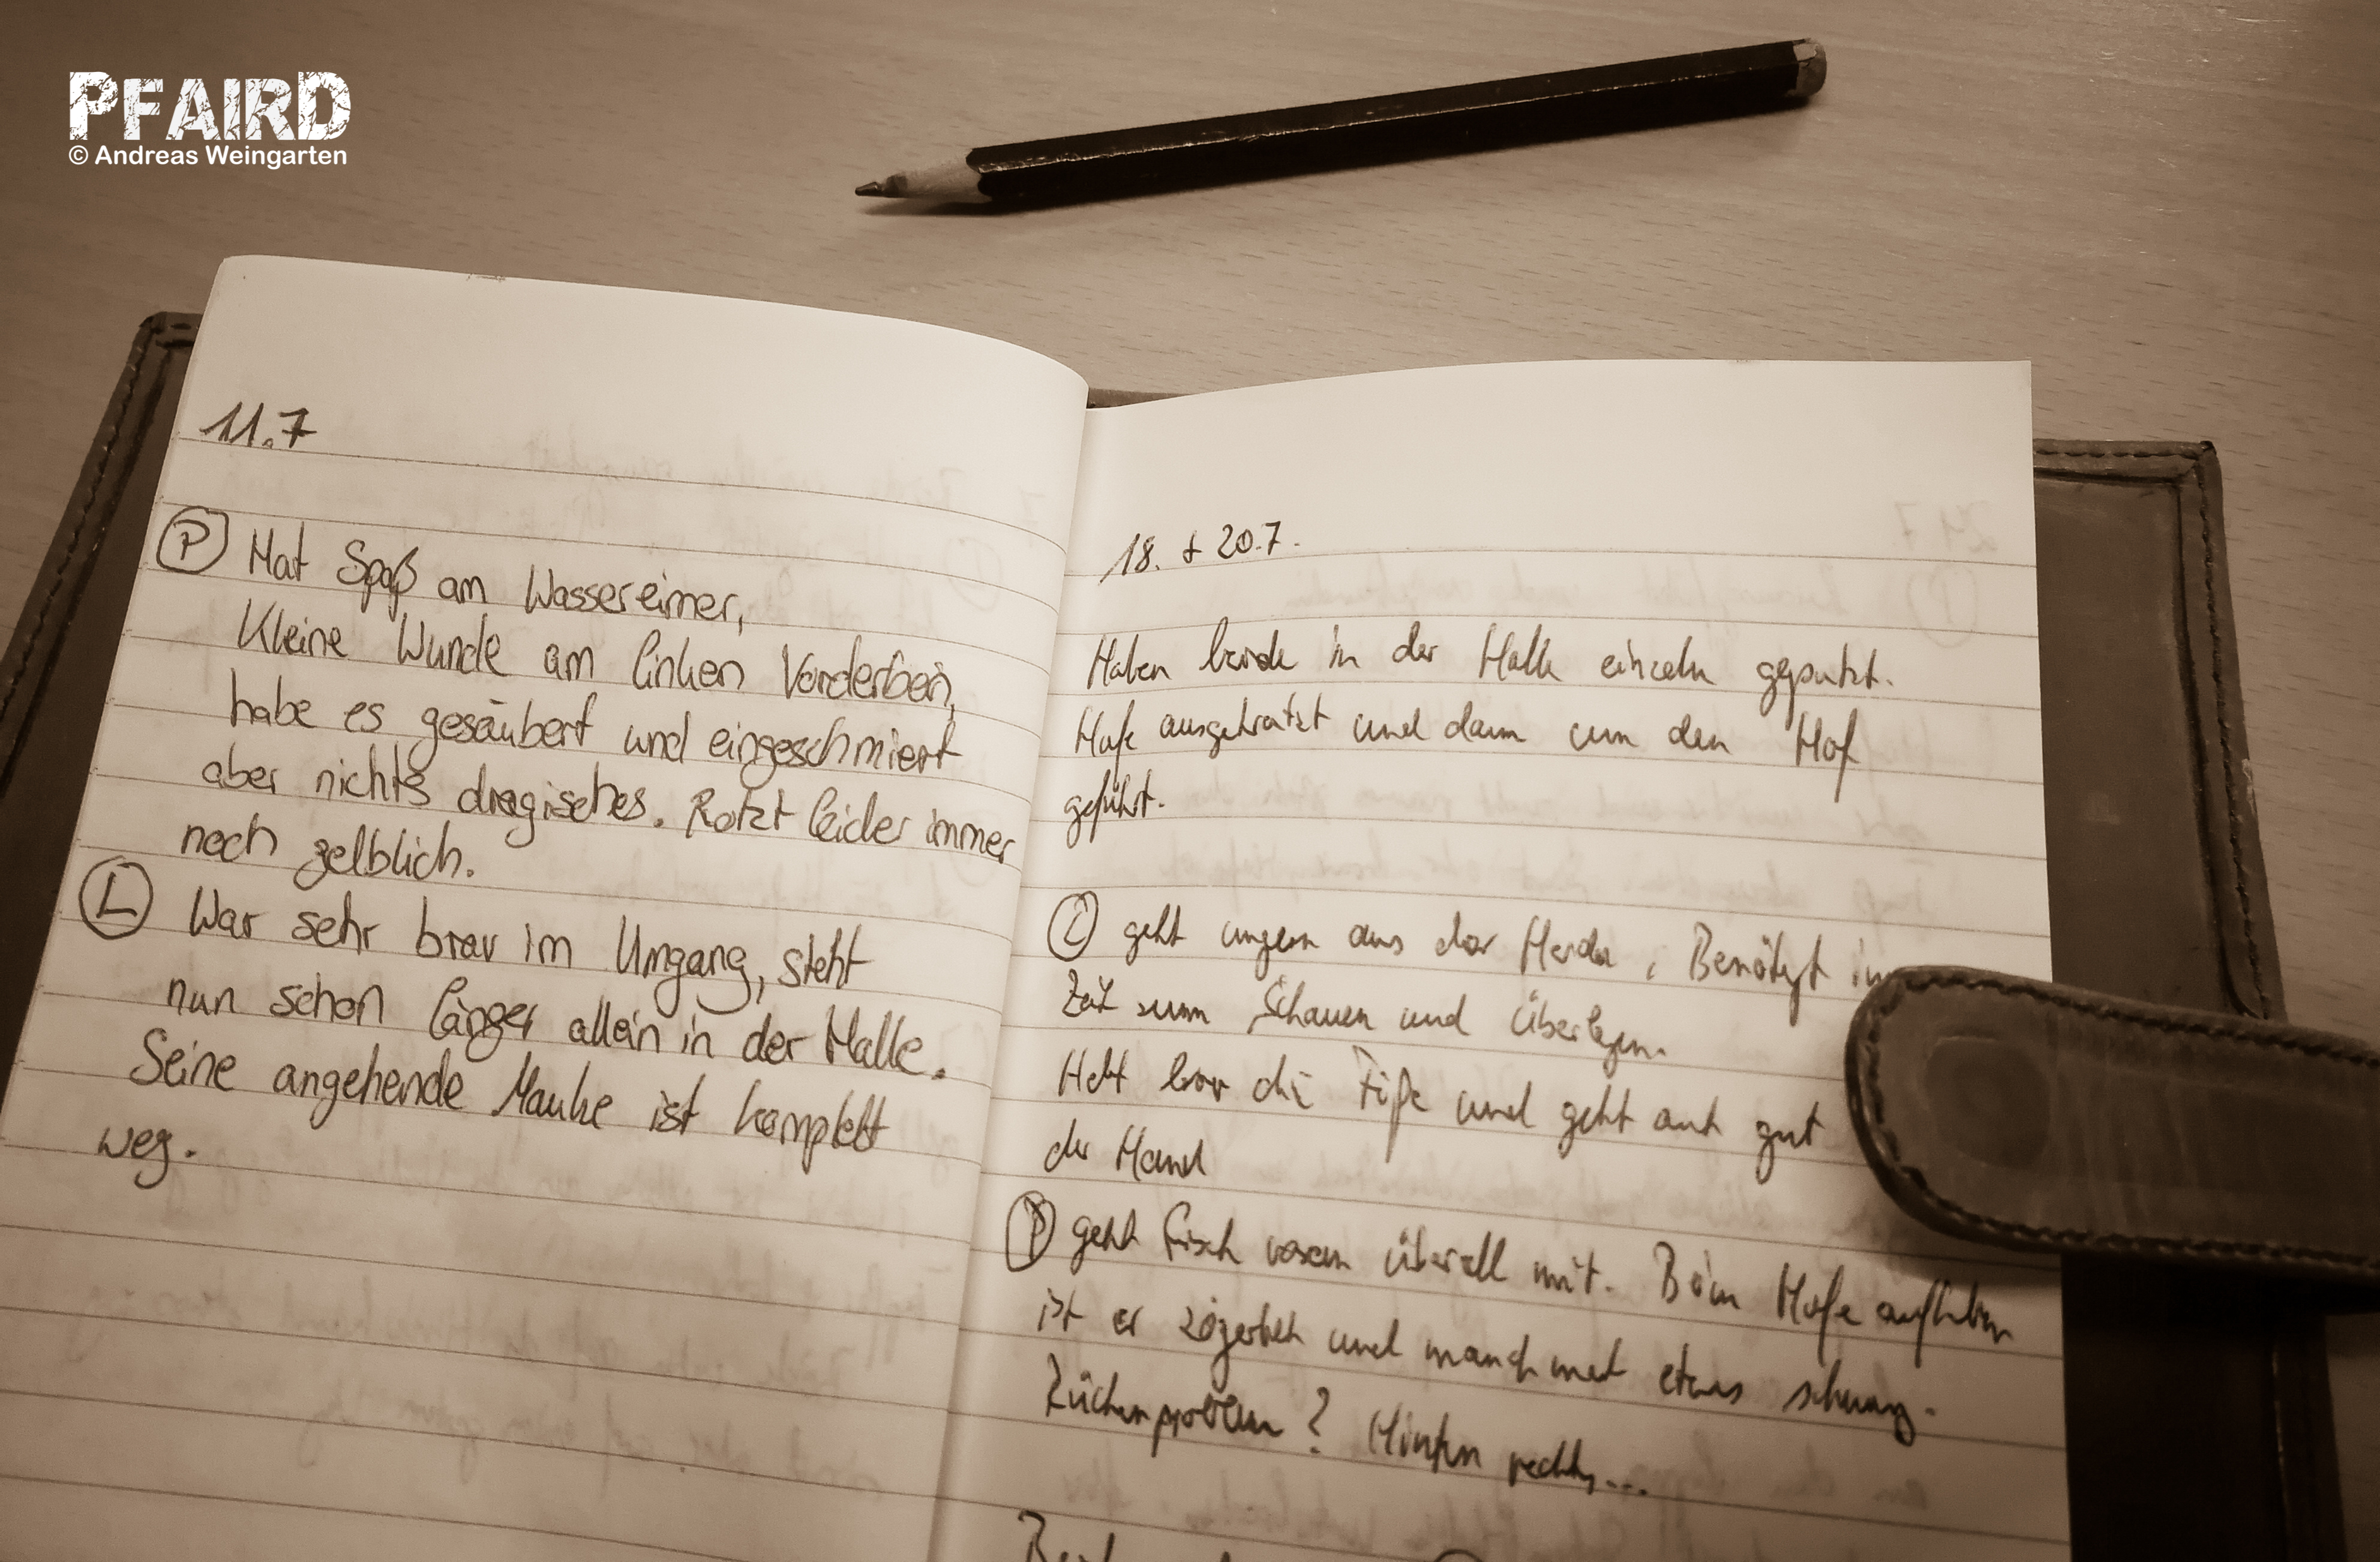 PFAIRD
© Andreas Weingarten
11.7
P Hat Spaß am Wassereimer,
Kleine Wunde am linken Vorderbein,
habe es gesäubert und eingeschmiert
aber nichts dragisches. Rotzt leider immer
noch gelblich.
L War sehr brav im Umgang, steht
nun schon länger allein in der Halle.
Seine angehende Mauke ist komplett
weg.
18. + 20.7.
Haben beide in der Halle einzeln geputzt.
Hufe ausgekratzt und dann um den Hof
geführt.
L geht ungern aus der Herde, Benötigt
Zeit zum Schauen und Überlegen.
Hebt brav die Füße und geht auch gut
der Hand
P geht frisch voran überall mit. Beim Hufe aufheben
ist er zögerlich und manchmal etwas
? Hinten rechts...